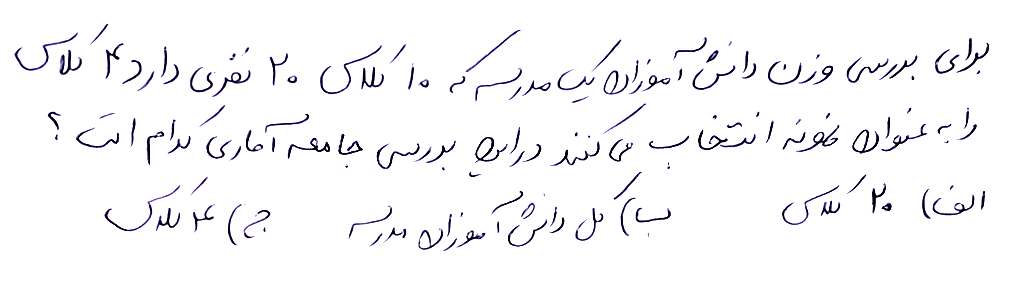 برای بررسی وزن دانش آموزان یک مدرسه که ۱۰ کلاس ۲۰ نفری دارد ۴ کلاس
را به عنوان نمونه انتخاب می کنند در این بررسی جامعه آماری کدام است ؟
الف) ۲۰ کلاس ب) کل دانش آموزان مدرسه ج) ۴ کلاس